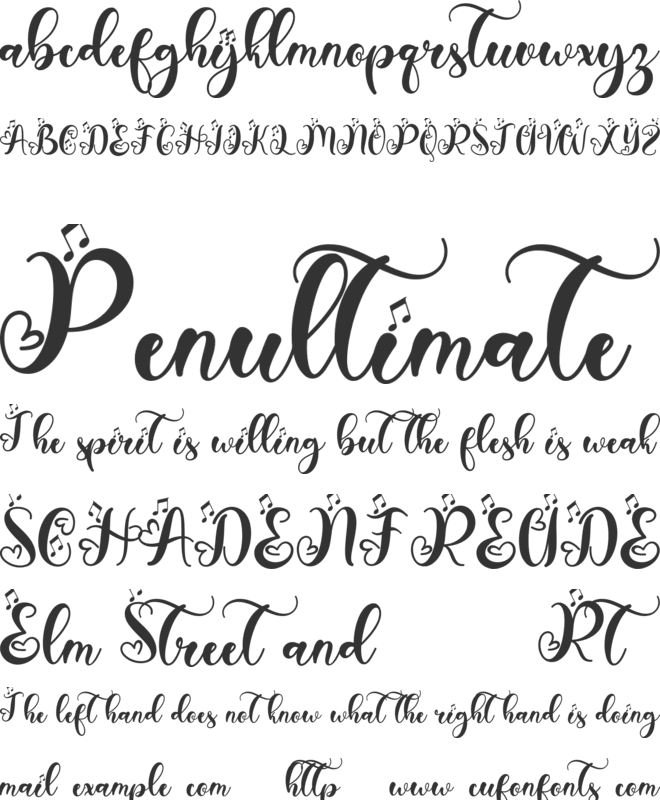 abcdefghijklmnopqrsTuvwxyz
ABCDEFGHIJKLMNOPQRSTUVWXYZ
Penultimate
The spirit is willing but the flesh is weak
SCHADENFREUDE
Elm Street and RT
The left hand does not know what the right hand is doing
mail example com http www cufonfonts com